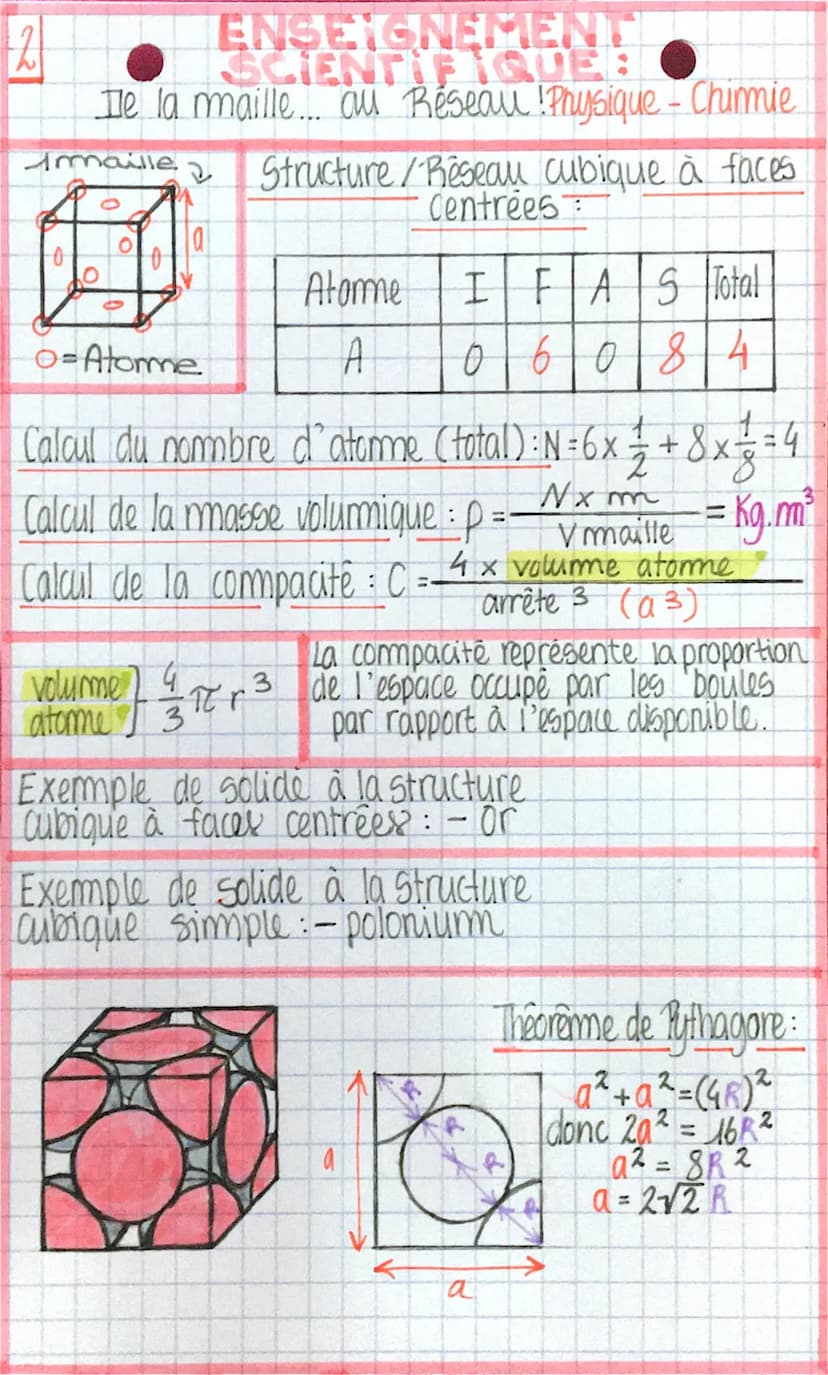 2
ENSEiGNEMENT
SCiENTiFiQUE :
De la maille... au Réseau ! Physique - Chimie
1 maille
a
O = Atome
Structure / Réseau cubique à faces
centrées :
Atome I F A S Total
A 0 6 0 8 4
Calcul du nombre d'atome (total) : N = 6 x 1/2 + 8 x 1/8 = 4
Calcul de la masse volumique : ρ = N x m / V maille = Kg.m³
Calcul de la compacité : C = 4 x volume atome / arrête 3 (a3)
volume
atome } 4/3 π r³
La compacité représente la proportion
de l'espace occupé par les boules
par rapport à l'espace disponible.
Exemple de solide à la structure
cubique à faces centrées : - Or
Exemple de solide à la structure
cubique simple : - polonium
Théorème de Pythagore :
a² + a² = (4R)²
donc 2a² = 16R²
a² = 8R²
a = 2√2 R
R
R
R
R
a
a